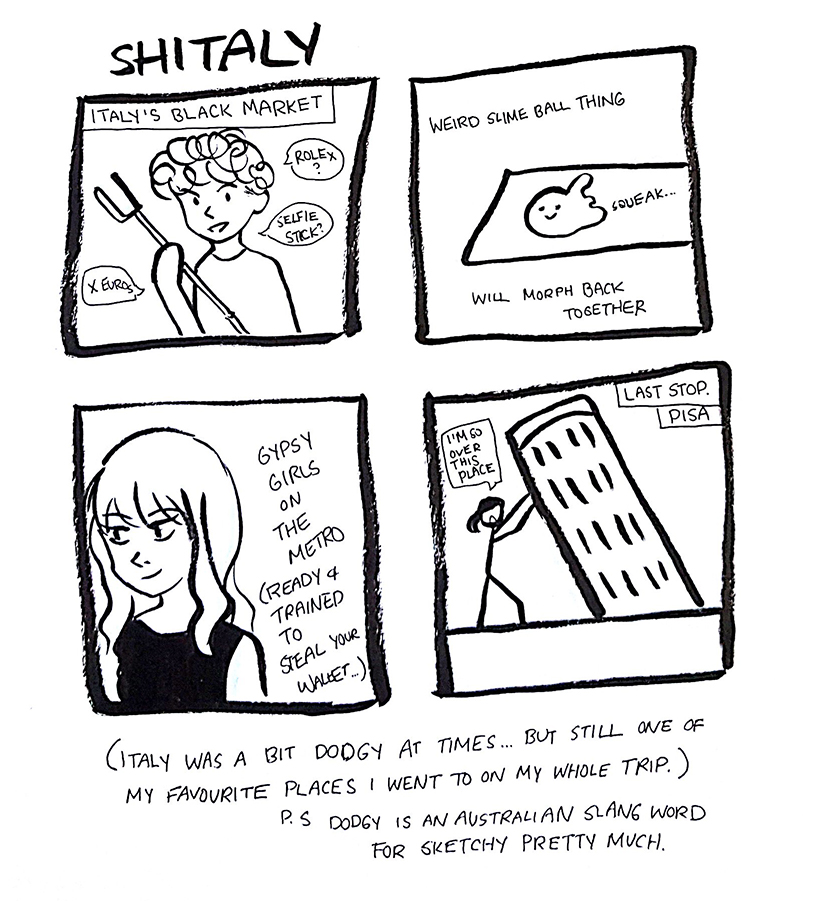 SHITALY
ITALY'S BLACK MARKET
ROLEX
?
SELFIE
STICK?
X EUROS
WEIRD SLIME BALL THING
SQUEAK...
WILL MORPH BACK
TOGETHER
GYPSY
GIRLS
ON
THE
METRO
(READY &
TRAINED
TO
STEAL YOUR
WALLET...)
LAST STOP.
PISA
I'M SO
OVER
THIS
PLACE
(ITALY WAS A BIT DODGY AT TIMES... BUT STILL ONE OF
MY FAVOURITE PLACES I WENT TO ON MY WHOLE TRIP.)
P.S DODGY IS AN AUSTRALIAN SLANG WORD
FOR SKETCHY PRETTY MUCH.